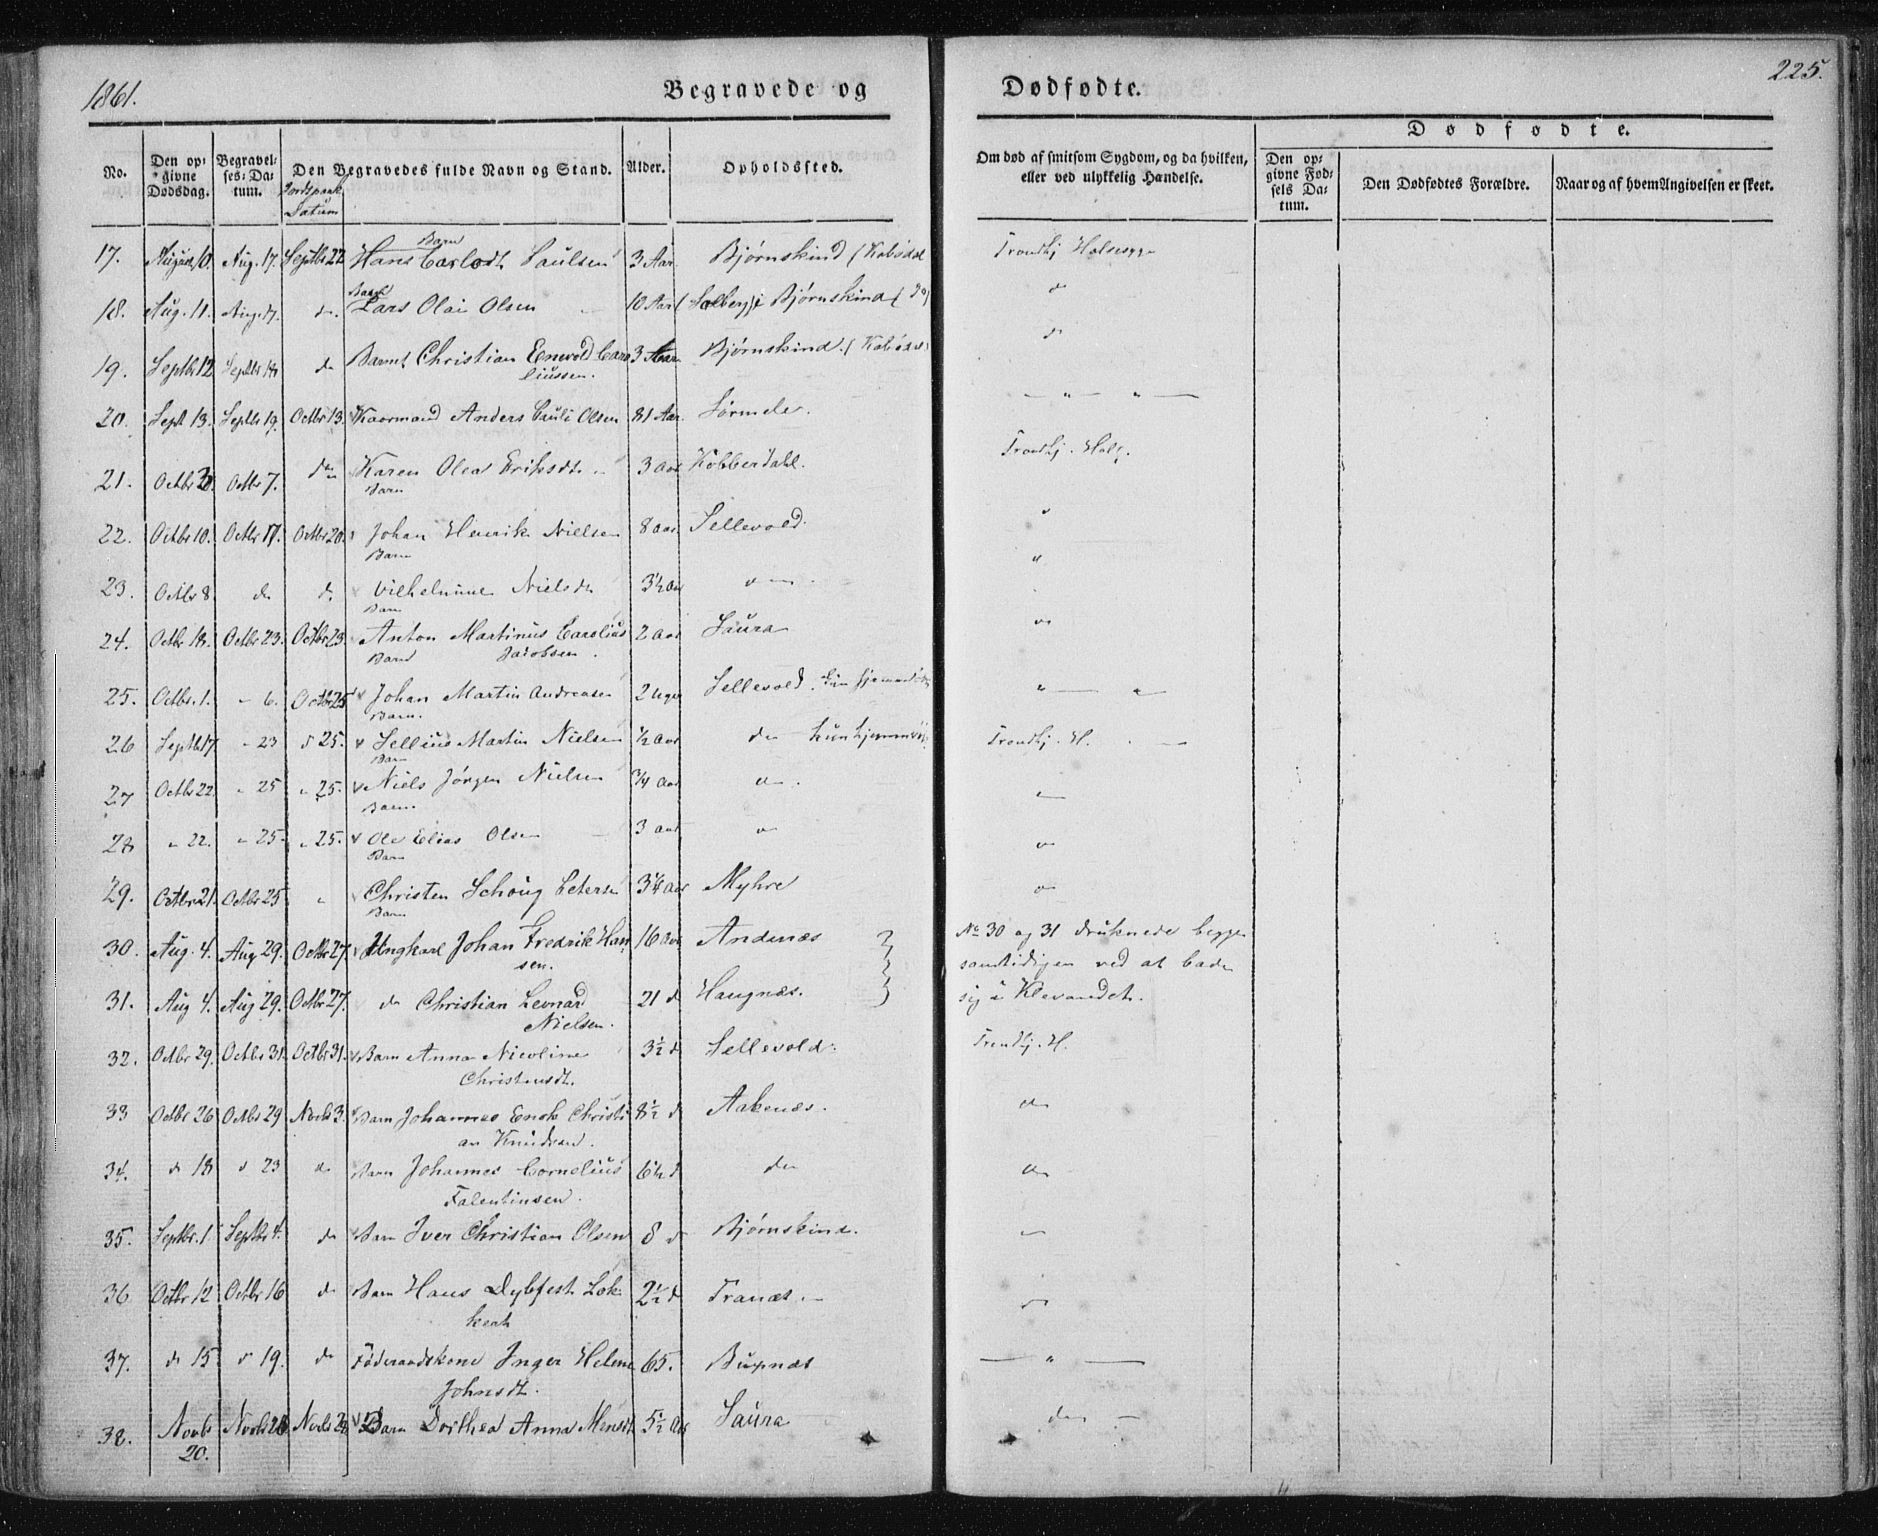 1861.
Begravede og
Dødfødte.
225.
No.
Den opgivne Dødsdag.
Begravelses-Datum.
Jordspaak. Datum
Den Begravedes fulde Navn og Stand.
Alder.
Opholdssted.
Om død af smitsom Sygdom, og da hvilken, eller ved ulykkelig Hændelse.
Dødfødte.
Den opgivne Fødsels Datum.
Den Dødfødtes Forældre.
Naar og af hvem Angivelsen er skeet.
17. August 10. Aug. 17. Septbr 22 Barn Hans Paulsen 3 Aar. Bjørnskind Trondhj Halssyge
18. Aug. 11. Aug. 17. do. Barn Lars Olai Olsen 10 Aar (Solberg) i Bjørnskind (do) do
19. Septbr 12 Septbr 18 do Barnet Christian Enevold Caro 3 Aar Bjørnskind. do
liussen.
20. Sept 13. Septbr 19. Octbr 13. Kaarmand Anders Pauli Olsen 81 Aar. Sørmele. — " — " —
21. Octbr Octbr 7. do Karen Olea Eriksdt 3 Aar Kobberdahl. Trondhj. Hals.
Barn
22. Octbr 10. Octbr 17. Octbr 20. Johan Henrik Nielsen 8 Aar. Sellevold. "
Barn
23. Octbr 8 do do Vilhelmine Nielsdt 3½ Aar do "
Barn
24. Octbr 18. Octbr 23. Octbr 23. Anton Martinus Carolius 2 Aar Saura do
Barn Jacobsen.
25. Octbr. 1. " 6. Octbr 25 Johan Martin Andreasen 2 Uger Sellevold. " — "
Barn.
26 Septbr 17. " 23 d 25. Sellius Martin Nielsen ½ Aar do Trondhj. H.
Barn
27 Octbr 22. " 25 " 25. Niels Jørgen Nielsen ¾ Aar do. do
Barn.
28 " 22. " 25. " 25. Ole Elias Olsen 3 Aar do do
Barn
29. Octbr 21. Octbr 25 " Christen Schoug Petersen 3¼ Aar Myhre do
Barn
30. Aug. 4. Aug 29. Octbr 27. Ungkarl Johan Fredrik Han 16 Aar Andenæs No 30 og 31 druknede begge
sen. samtidigen ved at bade
31. Aug 4. Aug 29. Octbr 27. do Christian Leonard 21 d Haugnæs. sig i Klevandet.
Nielsen.
32. Octbr 29. Octbr 31. Octbr 31. Barn Anna Nicoline 3½ d Sellevold. Trondhj. H.
Christensdt.
33 Octbr 26 Octbr 29 Novbr 3. Barn Johannes Enok Christi 8½ d Aakenæs. do
an Knudsen.
34. d 18 d 23 do Barn Johannes Cornelius 6½ d do do
Falentinsen.
35. Septbr. 1. Septbr 4. do Barn Iver Christian Olsen 8 d Bjørnskind. do
36 Octbr 12 Octbr 16 do Barn Hans Dybfest Lok 2½ d Tranæs do
kert
37. d 15 d 19. do Føderaadskone Inger Helene 65. Bupnæs — " —
Johnsdt.
38. Novbr Novbr Novbr Barn Dorthea Anna Mensdt 5½ Aar Saura do —
20.